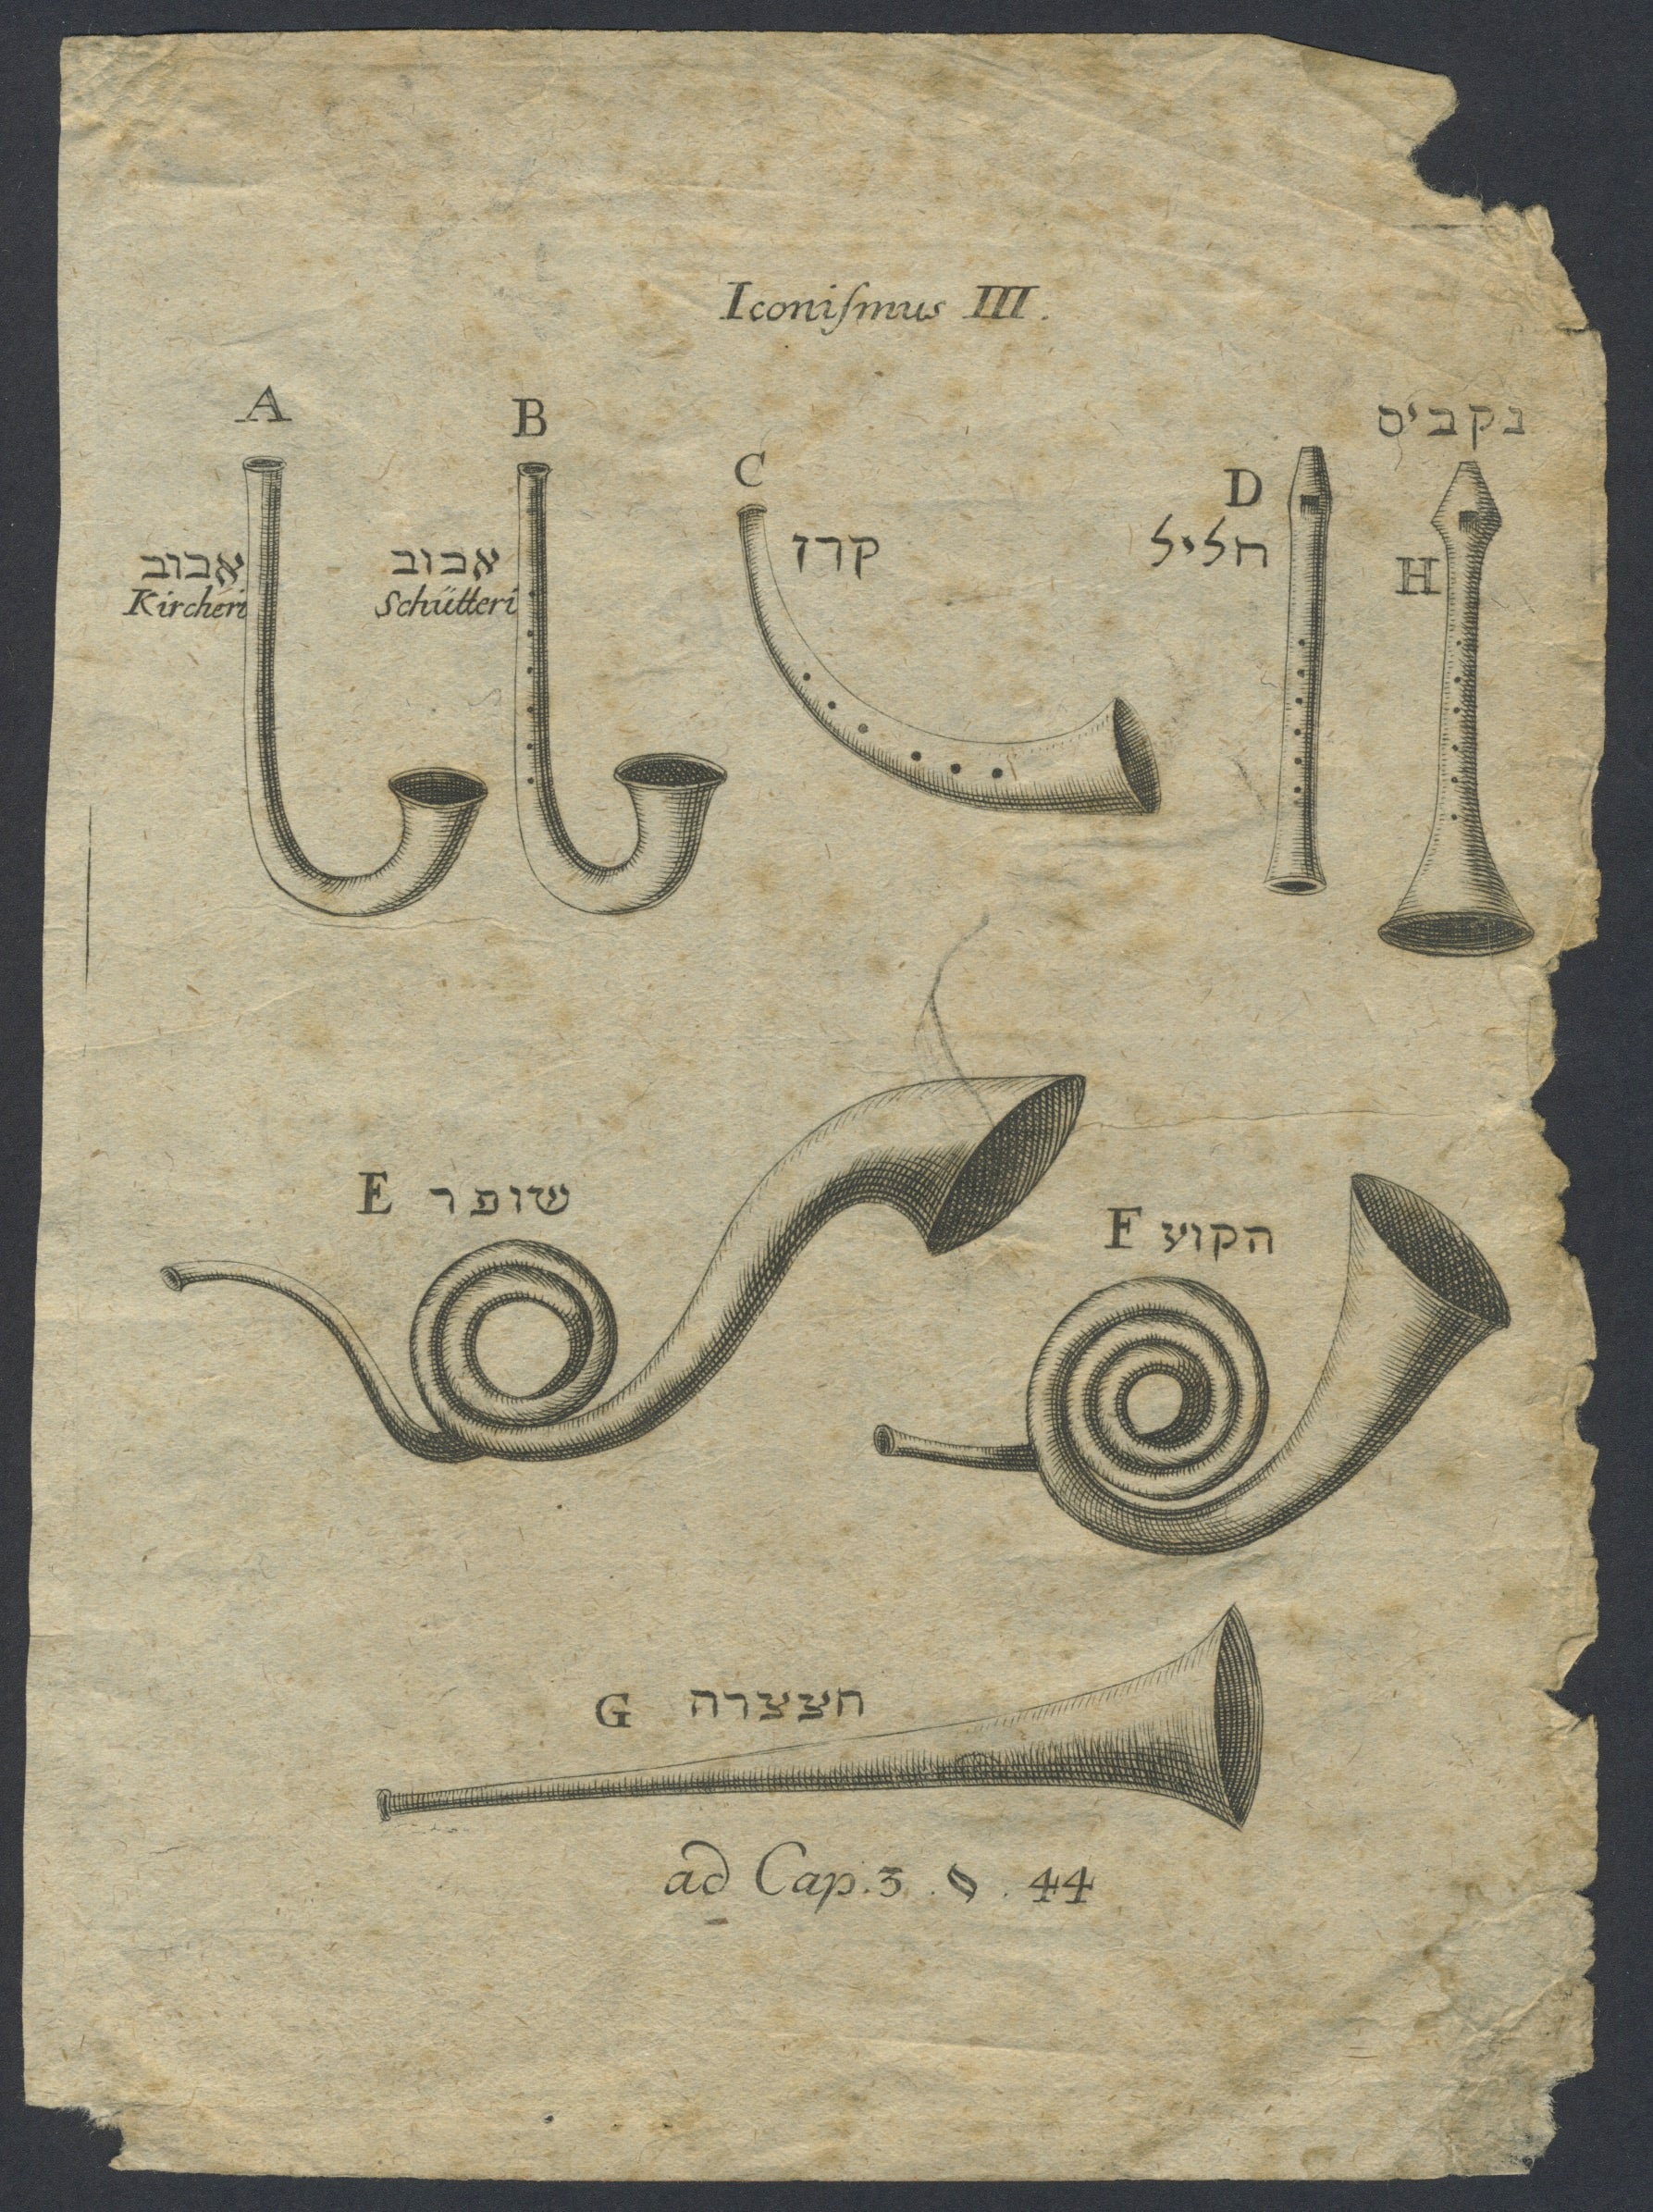 Iconiſmus III.
A
אבוב
Kircheri
B
אבוב
Schütteri
C
קרז
D
חליל
נקבים
H
E שופר
F הקוע
G חצצרה
ad Cap. 3 . § . 44